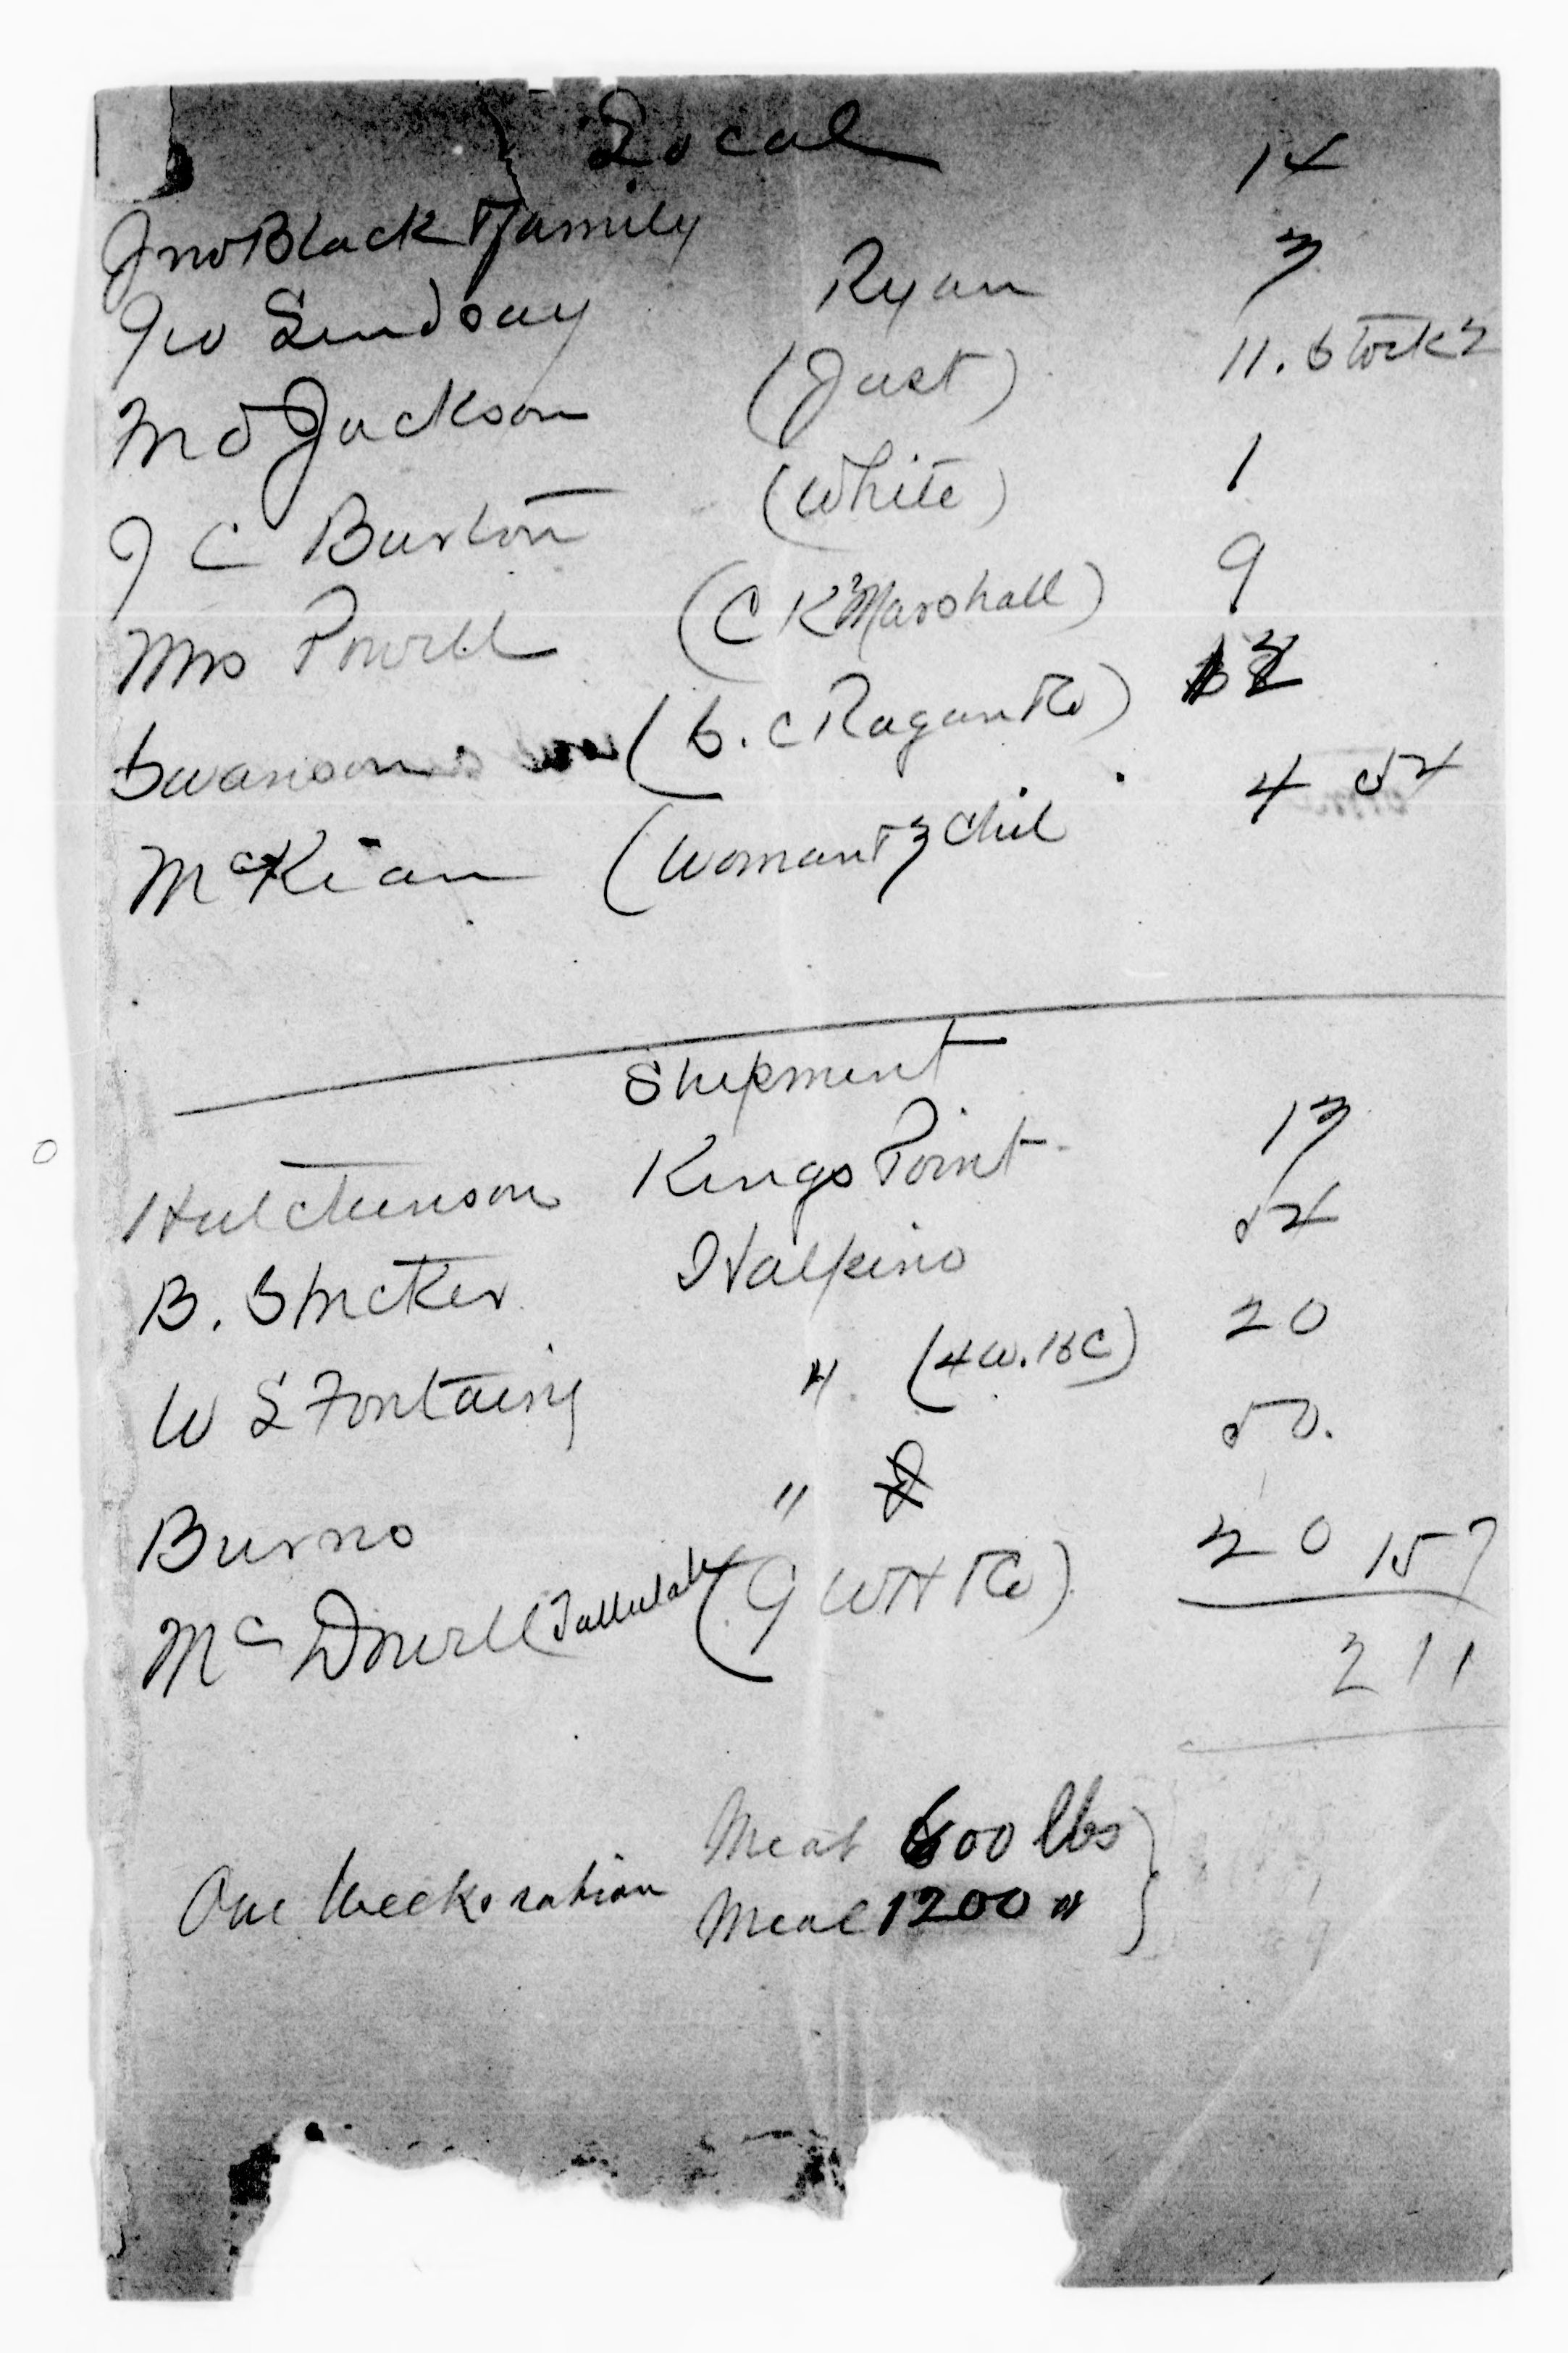 Local
Jno Black & family 14
Jno Lindsay Ryan 3
M D Jackson (Just) 11. Stock 2
J C Burton (White) 1
Mrs Powell (C K Marshall) 9
Swanson (S. C Ragan & Co) 12
McKian (Woman & 3 Chil 4 54
Shipment
Hutchinson Kings Point 13
B. Stricker Halpino 54
W L Fontaing " (4 W. 16 C) 20
Burns " 50.
McDowell (Tallulah (G W H & Co) 20 157
211
One Weeks ration Meat 600 lbs
Meal 1200 "